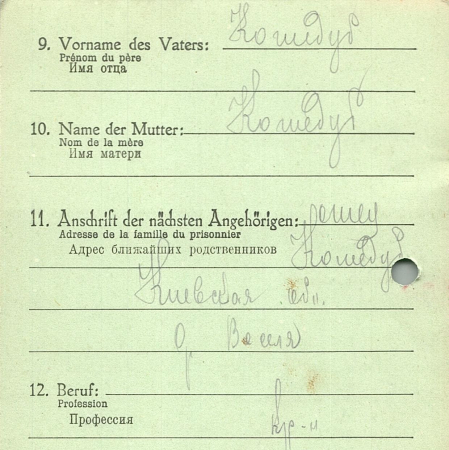 9. Vorname des Vaters: Кошедуб
Prénom du père
Имя отца
10. Name der Mutter: Кошедуб
Nom de la mère
Имя матери
11. Anschrift der nächsten Angehörigen: отец
Adresse de la famille du prisonnier
Адрес ближайших родственников Кошедуб
Киевская об.
д.
12. Beruf:
Profession
Профессия кр-н